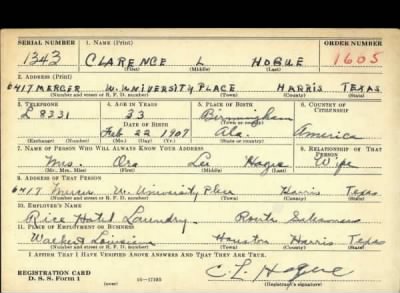 SERIAL NUMBER 1. NAME (Print) ORDER NUMBER
1343 CLARENCE L HOGUE 1605
(First) (Middle) (Last)
2. ADDRESS (Print)
6417 MERCER W. UNIVERSITY PLACE HARRIS TEXAS
(Number and street or R. F. D. number) (Town) (County) (State)
3. TELEPHONE 4. AGE IN YEARS 5. PLACE OF BIRTH 6. COUNTRY OF CITIZENSHIP
L 8331 33 Birmingham
DATE OF BIRTH (Town or county)
Feb 22 1907 Ala. America
(Exchange) (Number) (Mo.) (Day) (Yr.) (State or country)
7. NAME OF PERSON WHO WILL ALWAYS KNOW YOUR ADDRESS 8. RELATIONSHIP OF THAT PERSON
Mrs. Ora Lee Hogue Wife
(Mr., Mrs., Miss) (First) (Middle) (Last)
9. ADDRESS OF THAT PERSON
6417 Mercer W. University Place Harris Texas
(Number and street or R. F. D. number) (Town) (County) (State)
10. EMPLOYER'S NAME
Rice Hotel Laundry. Route Salesman
11. PLACE OF EMPLOYMENT OR BUSINESS
Walker & Louisiana Houston Harris Texas
(Number and street or R. F. D. number) (Town) (County) (State)
I AFFIRM THAT I HAVE VERIFIED ABOVE ANSWERS AND THAT THEY ARE TRUE.
REGISTRATION CARD C. L. Hogue
D. S. S. Form 1 (over) 16-17105 (Registrant's signature)